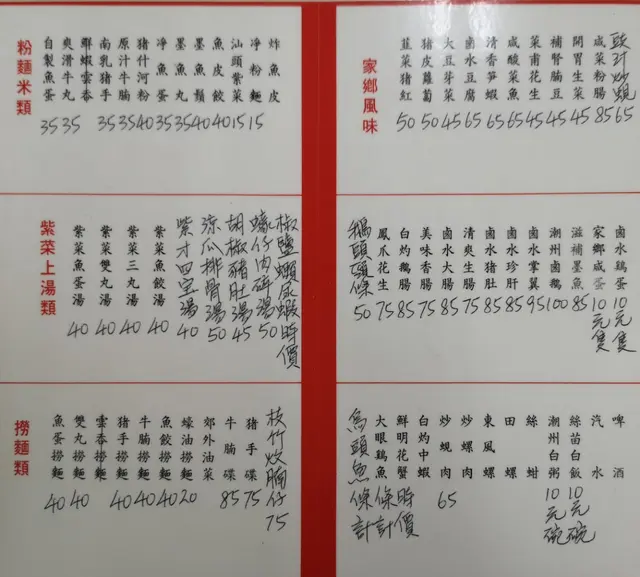 粉麵米類
自製魚蛋 35
爽滑牛丸 35
鮮蝦雲吞
南乳豬手 35
原汁牛腩 35
豬什河粉 40
淨魚蛋 35
墨魚丸 35
墨魚鬚 40
魚皮餃 40
汕頭紫菜 15
淨粉麵 15
炸魚皮
家鄉風味
韮菜豬紅 50
豬皮蘿蔔 50
大豆芽菜 45
鹵水豆腐 65
清香笋蝦 65
咸酸菜魚 65
菜甫花生 45
補腎腩豆 45
開胃生菜 45
咸菜粉腸 85
豉汁炒蜆 65
紫菜上湯類
紫菜魚蛋湯 40
紫菜雙丸湯 40
紫菜三丸湯 40
紫菜魚餃湯 40
紫才四宝湯 40
涼瓜排骨湯 50
胡椒豬肚湯 45
蠔仔肉碎湯 50
椒鹽瀨尿蝦時價
鵝頭頸條 50
鳳爪花生 75
白灼鵝腸 85
美味香腸 75
鹵水大腸 85
清爽生腸 75
鹵水豬肚 85
鹵水珍肝 85
鹵水掌翼 95
潮州鹵鵝 100
滋補墨魚 85
家鄉咸蛋 10元隻
鹵水鷄蛋 10元隻
撈麵類
魚蛋撈麵 40
雙丸撈麵 40
雲吞撈麵
豬手撈麵 40
牛腩撈麵 40
魚餃撈麵 40
蠔油撈麵 20
郊外油菜
牛腩碟 85
豬手碟 75
枝竹炆腩仔 75
烏頭魚條計
大眼鷄魚條計
鮮明花蟹時價
白灼中蝦
炒蜆肉 65
炒螺肉
東風螺
田螺
絲蚶
潮州白粥 10元碗
絲苗白飯 10元碗
汽水
啤酒